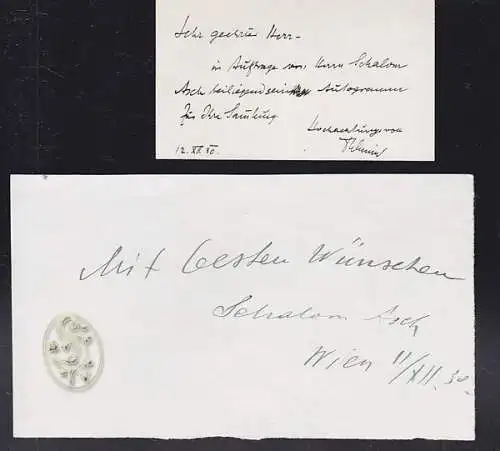 Sehr geehrter Herr –
im Auftrage von Herrn Schalom
Asch beiliegend sein Autogramm
für Ihre Samlung
Hochachtungsvoll
12. XII 30.
Mit besten Wünschen
Schalom Asch
Wien 11/XII. 30.